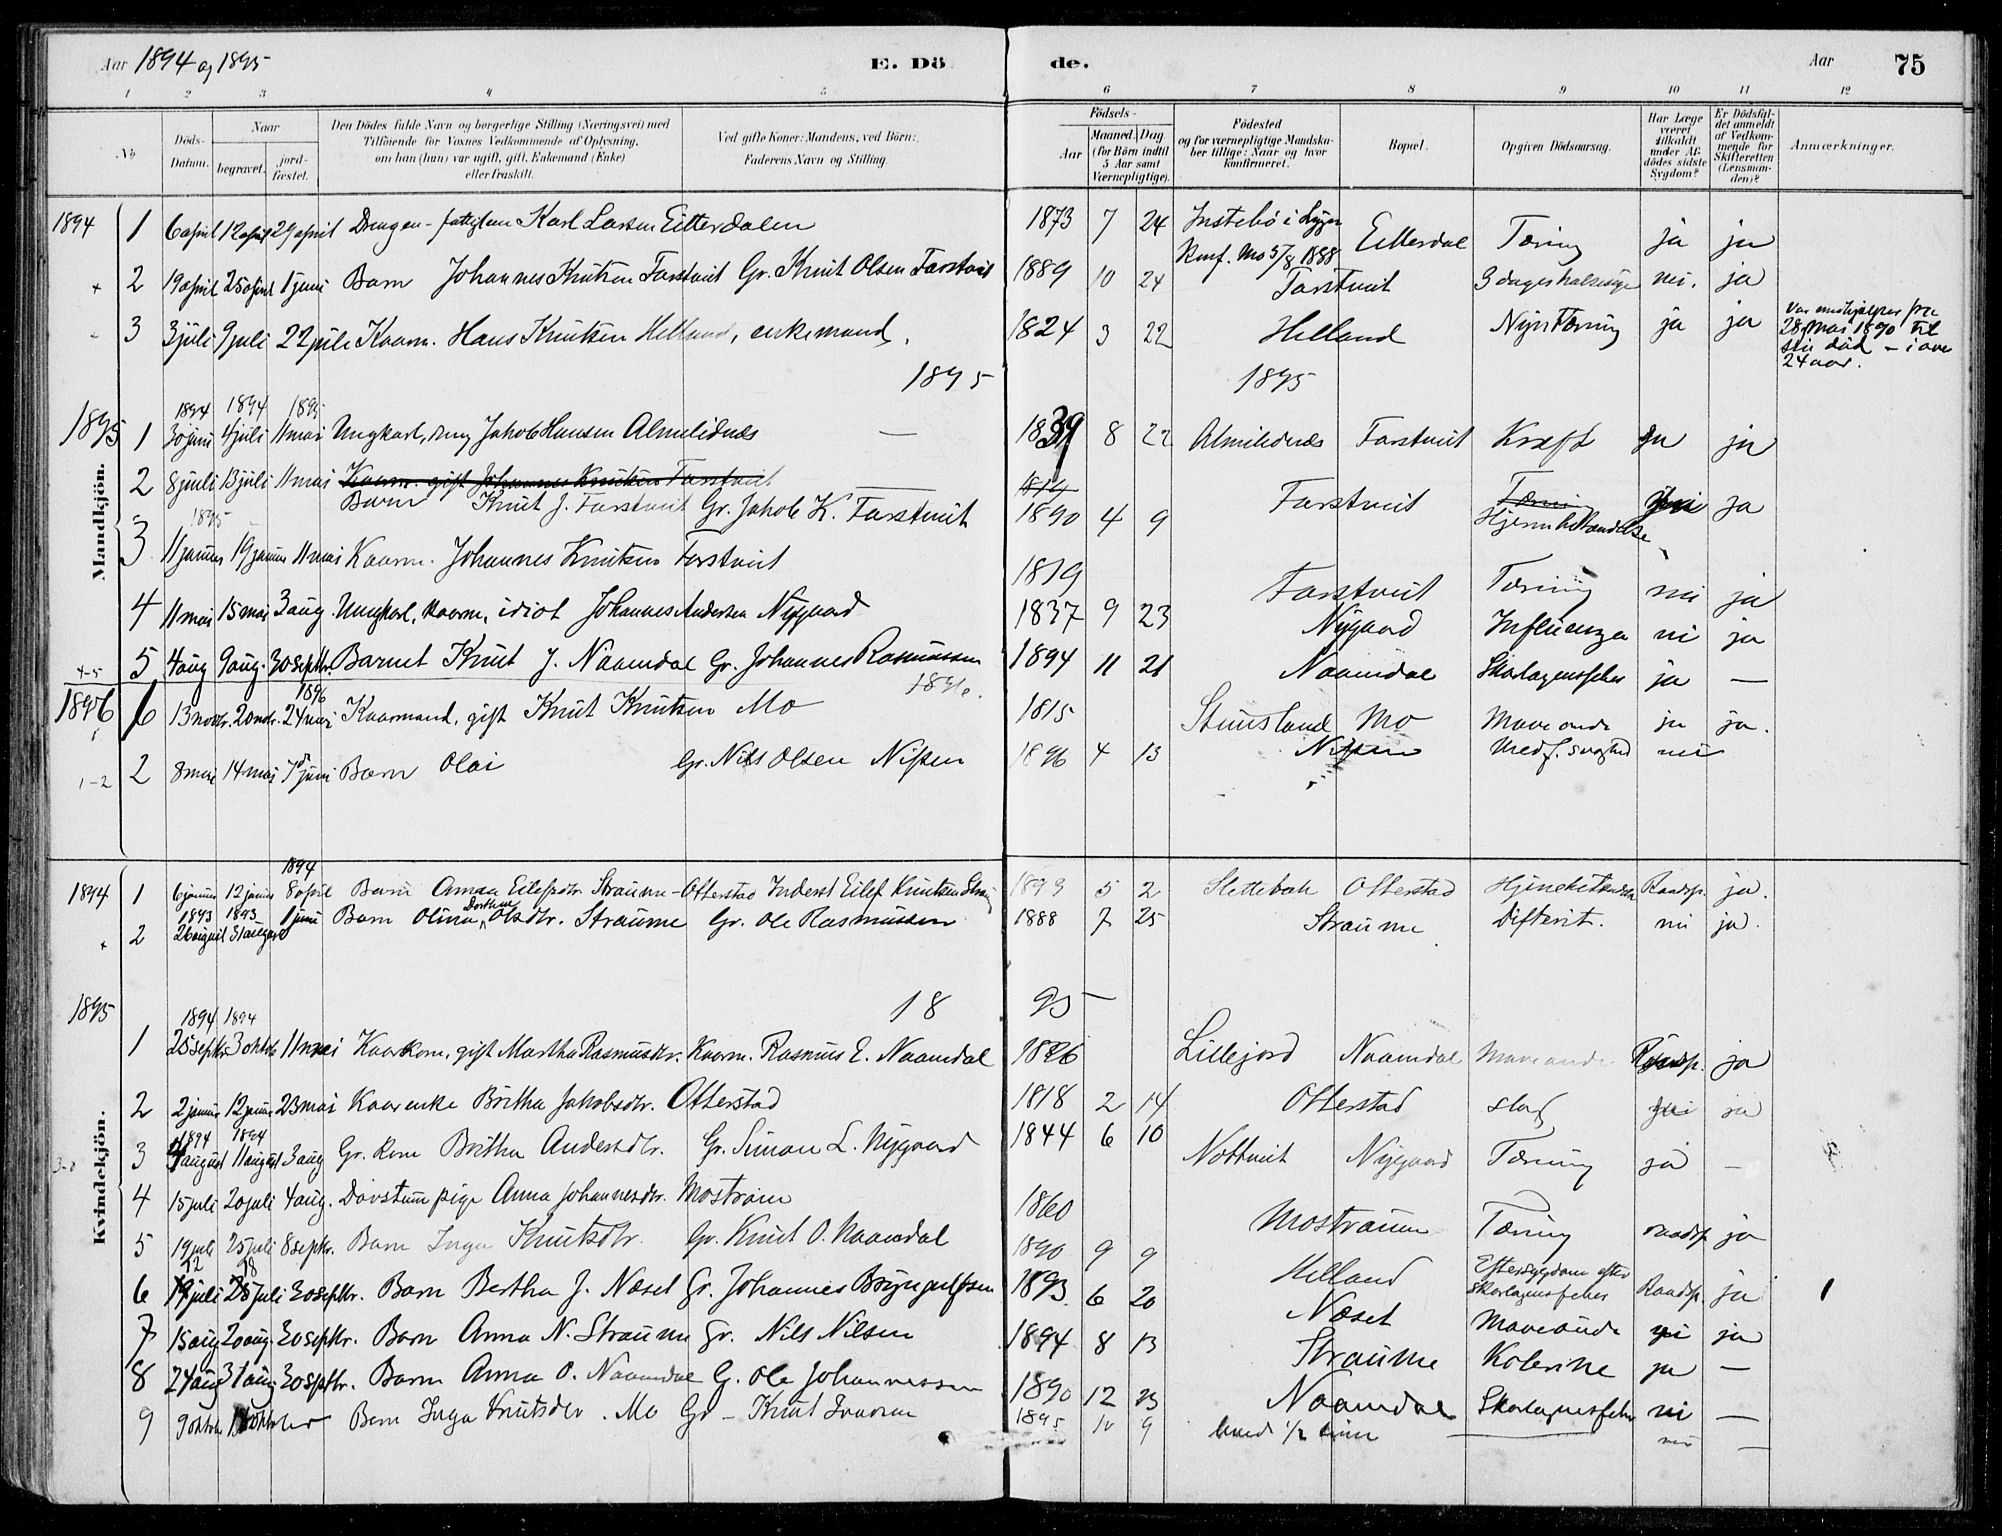 Aar 1894 og 1895 E. Dö de. Aar 75
1 2 3 4 5 6 7 8 9 10 11 12
No
Döds-Datum.
Naar
begravet.
jord-fæstet.
Den Dödes fulde Navn og borgerlige Stilling (Næringsvei) med
Tilföiende for Voxnes Vedkommende af Oplysning,
om han (hun) var ugift, gift, Enkemand (Enke)
eller fraskilt.
Ved gifte Koner: Mandens, ved Börn:
Faderens Navn og Stilling.
Födsels-
Aar
Maaned. Dag.
(for Börn indtil
5 Aar samt
Værnepligtige).
Födested
og for værnepligtige Mandska-
ber tillige: Naar og hvor
konfirmeret.
Bopæl.
Opgiven Dödsaarsag.
Har Læge
været
tilkaldt
under Af-
dödes sidste
Sygdom?
Er Dödsfal-
det anmeldt
af Vedkom-
mende for
Skifteretten
(Lensman-
den)?
Anmærkninger.
Mandkjön.
1894 1 6 april 12 april 29 april Drengen - fattiglem Karl Larsen Eitterdalen 1873 7 24 Instebö i Konf. Mo 5/8 1888 Eitterdal Tæring ja ja
2 19 april 25 april 1 juni Barn Johannes Knutsen Farstveit Gr. Knut Olsen Farstveit 1889 10 24 Farstveit 3 dages halssyge nei. ja
3 3 juli 9 juli 22 juli Kaarm. Hans Knutsen Helland, enkemand. 1824 3 22 Helland Tæring ja ja
28 mai 1890 til
sin död - i over
24 aar.
1895 1895
1894 1894 1895
1895 1 30 juni 4 juli 11 mai Ungkarl, Jakob Hansen Almelidnæs — 1839 8 22 Almelidnæs Farstveit Kræft ja ja
2 8 juli 13 juli 11 mai Kaarm. gift Johannes Knutsen Farstveit
Barn Knut J. Farstveit Gr. Jakob K. Farstveit 1890 4 9 Farstveit Tæring Hjernebetændelse nei ja
1895
3 11 januar 19 januar 11 mai Kaarm. Johannes Knutsen Farstveit 1819 Farstveit Tæring nei ja
4 11 mai 15 mai 3 aug. Ungkarl, kaarm., idiot Johannes Andersen Nygaard 1837 9 23 Nygaard Influenza nei ja
4-5 5 4 aug 9 aug. 30 septbr. Barnet Knut J. Naamdal Gr. Johannes Rasmussen 1894 11 21 Naamdal Skarlagensfeber ja —
1896 1896.
1896 1 13 novbr. 20 nvbr. 24 mai Kaarmand, gift Knut Knutsen Mo 1815 Stuvsland Mo Mave onde ja ja.
1-2 2 8 mai 14 mai 7 juni Barn Olai Gr. Nils Olsen Nipen 1896 4 13 Nipen Medf. svaghed nei
Kvindekjön.
1894
1894 1 6 januar 12 januar 8 april Barn Anna Eilefsdtr. Straume - Otterstad Inderst Eilef Knutsen 1893 5 2 Slettebak Otterstad Raadsp. ja.
1893 1893
2 26 august 31 august 1 juni Barn Olina Dorthea Olsdtr. Straume Gr. Ole Rasmussen 1888 7 25 Straume Difterit. nei ja.
1895 18 95 —
1894 1894
1 25 septbr. 3 oktob 11 mai Kaarkone, gift Martha Rasmusdtr. Kaarm. Rasmus E. Naamdal 1826 Lillejord Naamdal Maveonde Raadsp. ja
2 2 januar 12 januar 23 mai Kaarenke Britha Jakobsdtr. Otterstad 1818 2 14 Otterstad slag nei ja
1894 1894
3 august 11 august 3 aug Gr. kone Britha Andersdtr. Gr. Simon L. Nygaard 1844 6 10 Nottveit Nygaard Tæring ja —
4 15 juli 20 juli 4 aug. Dövstum pige Anna Johannesdtr. Mostraum 1860 Mostraum Tæring raadsp ja
5 19 juli 25 juli 8 septbr. Barn Inga Knutsdtr. Gr. Knut O. Naamdal 1890 9 9 Helland Eftersygdom efter Skarlagensfeber Raadsp. ja
12 18
6 juli juli 30 septbr. Barn Bertha J. Næset Gr. Johannes Brynjulfsen 1893 6 20 Næset Maveonde nei ja
7 15 aug 20 aug. 30 septbr. Barn Anna N. Straume Gr. Nils Nilsen 1894 8 13 Straume Kolerine ja —
8 24 aug 31 aug 30 septbr. Barn Anna O. Naamdal G. Ole Johannessen 1890 12 23 Naamdal Skarlagensfeber nei —
9 9 oktob oktober Barn Inga Knutsdtr. Mo Gr - Knut Ivarsen 1895 10 9 levede 1/2 time nei —